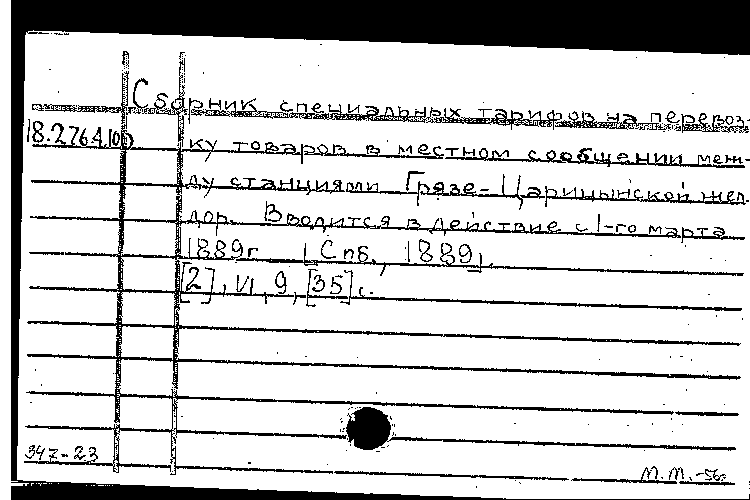 Сборник специальных тарифов на перевоз-
18.276.4.100 ку товаров в местном сообщении меж-
ду станциями Грязе-Царицынской жел.
дор. Вводится в действие с 1-го марта
1889г. Спб., 1889.
[2], VI, 9, [35] с.
34z-23
М.М.-56